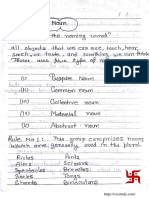 Noun
"the naming word"
all objects that we can see, touch, hear,
smell, or taste, and something we can think
There are five type of noun
(i) Proper noun
(ii) Common noun
(iii) Collective noun
(iv) Material noun
(v) Abstract noun
Rule No. 1: This group comprises nouns
which are generally used in the plural
Riches Pants
Alms Scissors
Spectacles
Socks Tongs
Shorts Binoculars